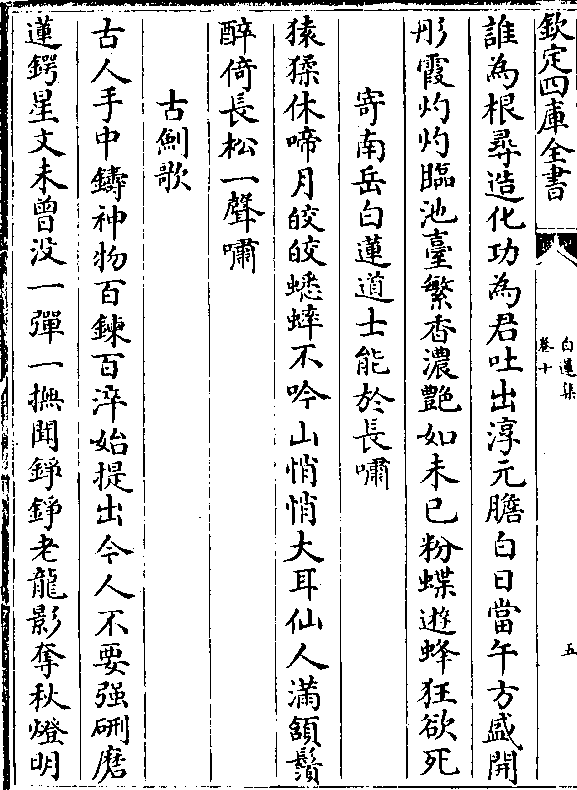 欽定四庫全書
白蓮集
卷十
五
誰為根尋造化功為君吐出淳元膽白日當午方盛開
彤霞灼灼臨池臺繁香濃艷如未已粉蝶遊蜂狂欲死
寄南岳白蓮道士能於長嘯
猿猱休啼月皎皎蟋蟀不吟山悄悄大耳仙人滿頷鬚
醉倚長松一聲嘯
古劍歌
古人手中鑄神物百鍊百淬始提出今人不要强硎磨
蓮鍔星文未曾没一彈一撫聞錚錚老龍影奪秋燈明